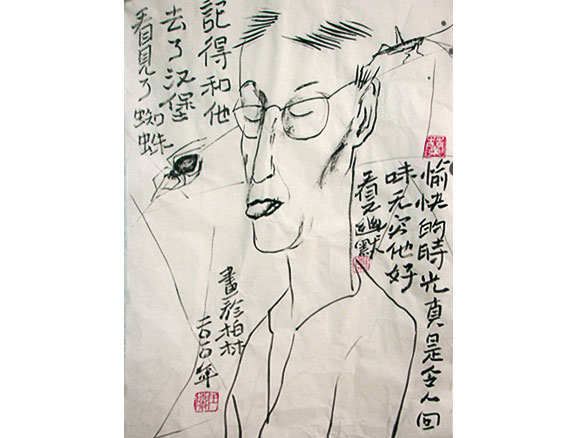 愉快的時光真是令人回
味无穷他好
看又幽默
記得和他
去了汉堡
看見了蜘蛛
畫於柏林